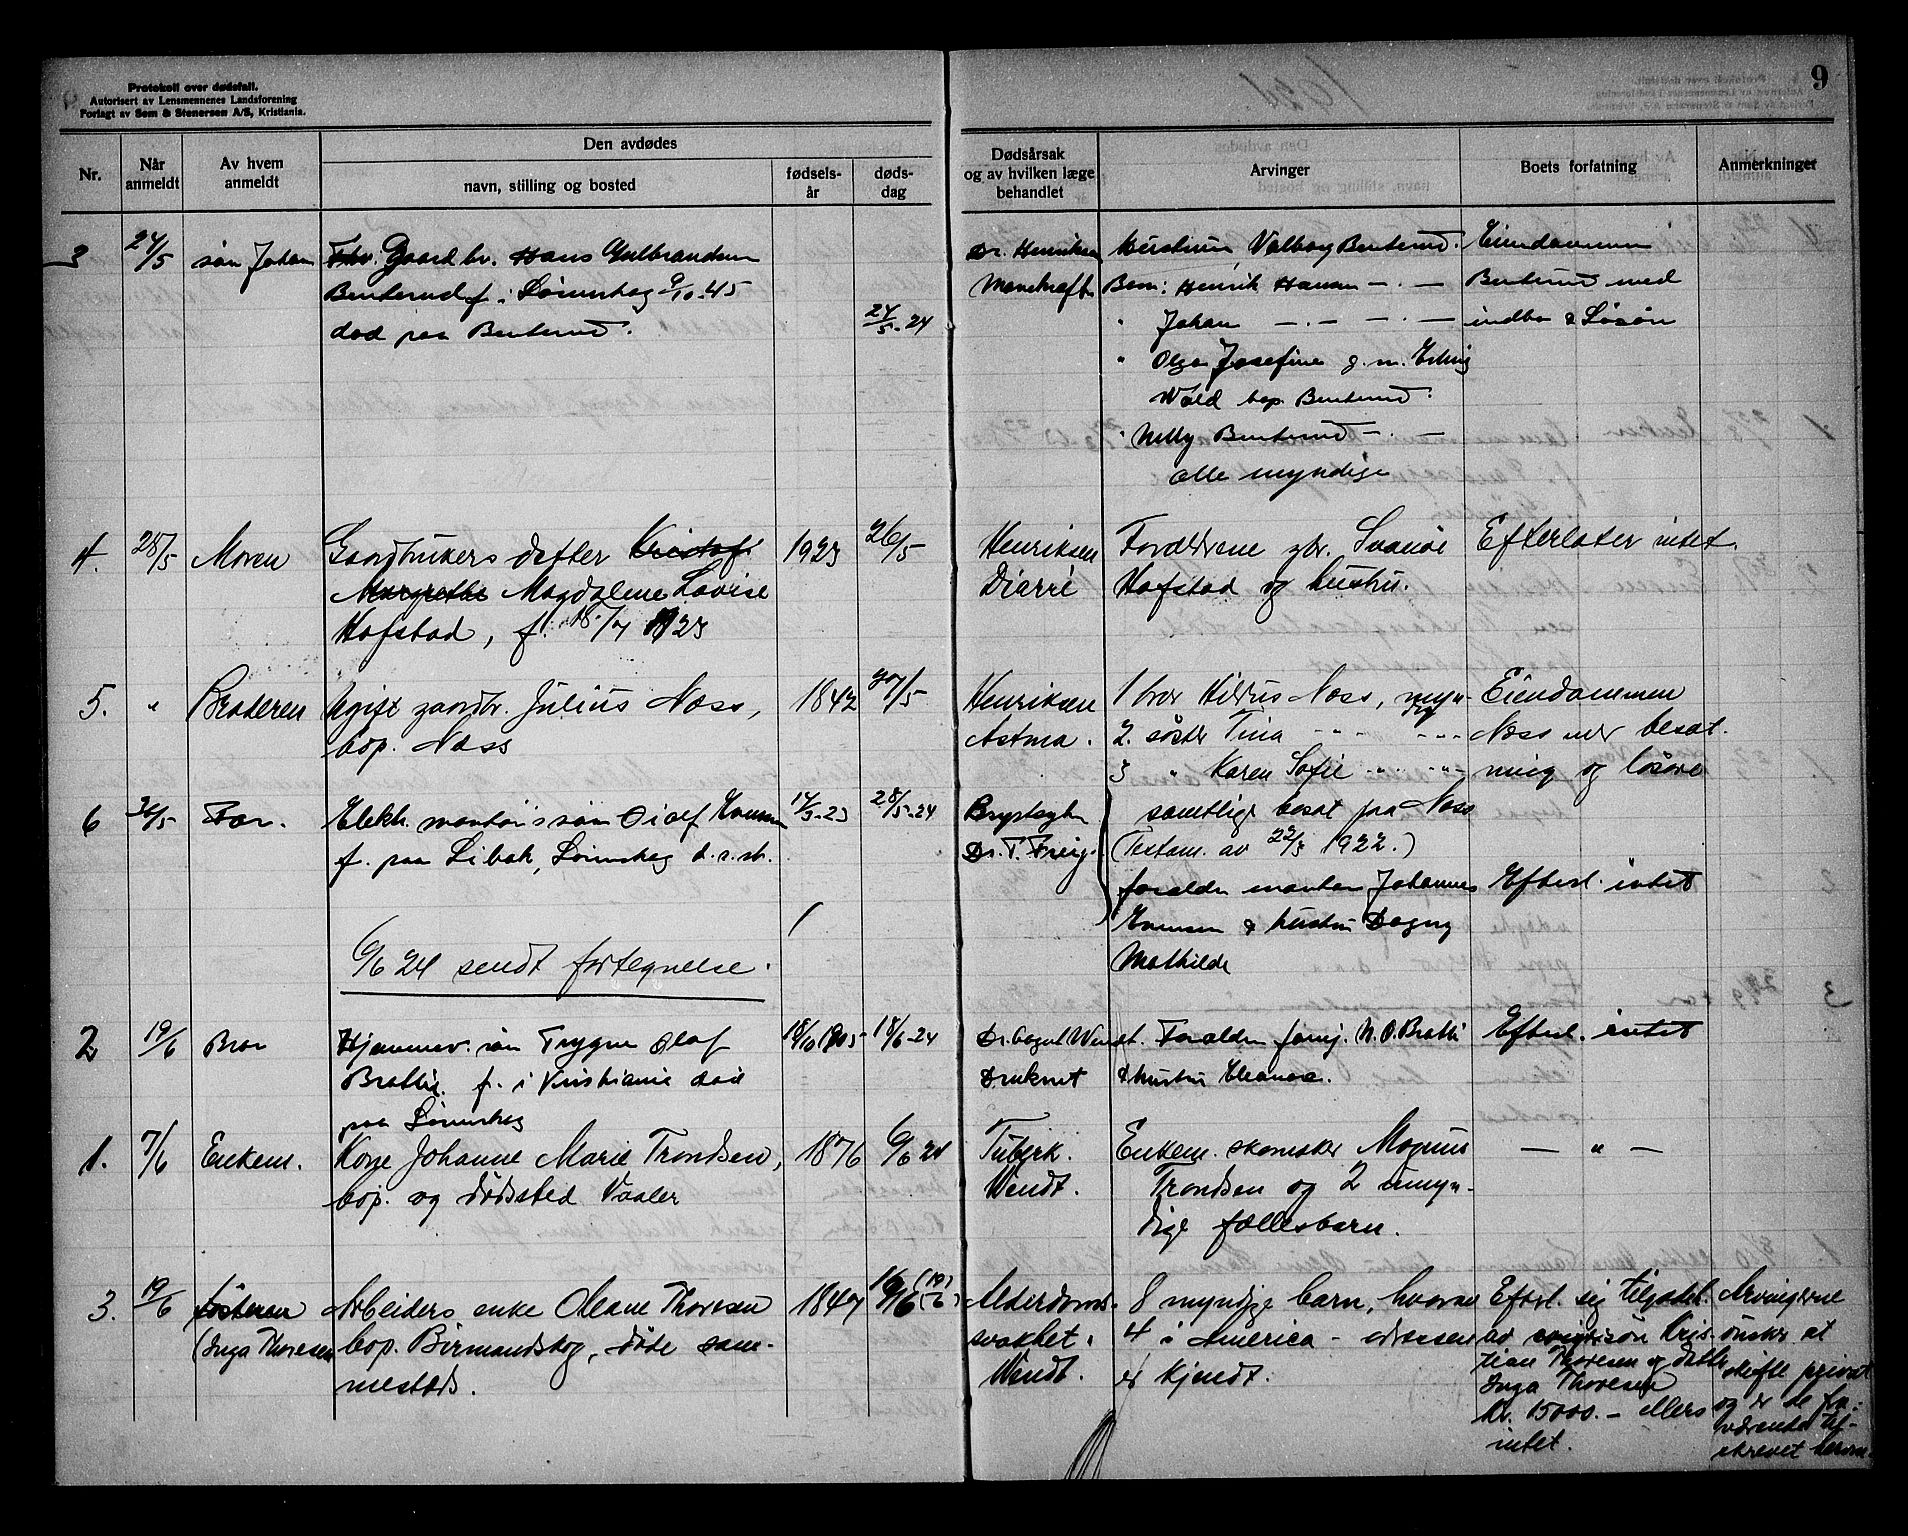 Protokoll over dødsfall.
Autorisert av Lensmennenes Landsforening
Forlagt av Sem & Stenersen A/S, Kristiania.
9
Nr.
Når anmeldt
Av hvem anmeldt
Den avdødes
navn, stilling og bosted
fødsels-år
døds-dag
Dødsårsak og av hvilken læge behandlet
Arvinger
Boets forfatning
Anmerkninger
3 24/5 søn Johan Fhv. Gaardbr. Hans Gulbrandsen
Benterud f. i Lørenskog 9/10-45
død paa Benterud. 24/5-24
Dr. Henriksen
Hustruen Valborg Benterud.
Barn: Henrik Hansen — . —
" Johan — . — — . —
" Olga Josefine g. m. Erling
Wold bop. Benterud.
" Nelly Benterud — . —
alle myndige
Eiendommen
Benterud med
indbo & Løsøre
4. 28/5 Moren Gaardbrukers datter Kristofi
Margrethe Magdalene Lovise
Hofstad, f. 15/4 1923
1923 26/5
Henriksen
Diarré
Forældrene gbr. Svanøe
Hofstad og hustru.
Efterlater intet.
5. " Broderen Ugift gaardbr. Julius Næss,
bop. Næss
1842 27/5
Henriksen
Astma.
1 bror Hilrus Næss, myn-
dig
2. søster Tina - " - - " -
3 " Karen Sofie - " - - " -
samtlige bosat paa Næss
(Testam. av 22/3 1922.)
Eiendommen
Næss med besæt.
ning og løsøre
6 30/5 Far. Elektr. montørs søn Oialf Evensen
f. paa Libak, Lørenskog d. s. st.
17/3-23 28/5-24
Dr. T.
forældre montør Johannes
Evensen & hustru Dagny
Mathilde
Efterl. intet
6/6 24 sendt fortegnelse.
2 19/6 Bror Hjemmev. søn Trygve Olaf
Brattli f. i Kristiania død
paa Lørenskog
18/10 1905 18/6-24
Dr. August Wendt.
Druknet
Forældre N. O. Brattli
& hustru Eleanora.
Efterl. intet
1. 7/6 Enkem. Kone Johanne Marie Trondsen,
bop. og dødssted Vaaler
1876 6/6 24
Tuberk.
Wendt.
Enkem. skomaker Magnus
Trondsen og 2 umyn-
dige fællesbarn.
— " —
3. 19/6 søsteren
(Inga Thoresen
Arbeiders enke Oleane Thoresen
bop. Birmandskog, døde sam-
mesteds.
1847 16/6 (19/6)
Alderdoms-
svakhet.
Wendt.
8 myndige barn, hvorav
4 i America - adressen
er kjendt.
Efterl. sig tilgodeh.
av søn Kris-
tian Thoresen og datter
Inga Thoresen
kr. 15000. - ellers
intet.
Arvingerne
ønsker at
skifte privat
og er de fra-
værende til-
skrevet herom